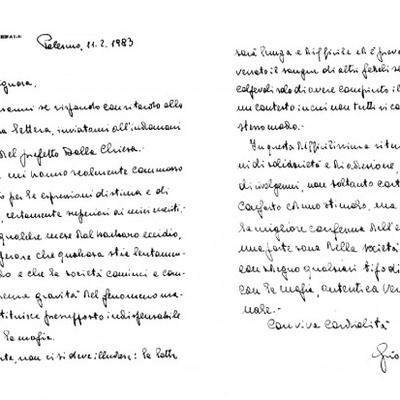 Palermo, 11.2.1983
ignora,
se rispondo con ritardo alla
lettera, inviatami all'indomani
del prefetto Dalla Chiesa.
mi hanno realmente commosso
per le espressioni di stima e di
certamente superiori ai miei meriti.
qualche mese dal barbaro eccidio,
sperare che qualcosa stia lentamen-
do e che la società cominci a con-
gravità del fenomeno ma-
stituisce presupposto indispensabile
la mafia.
non ci si deve illudere: la lotta
sarà lunga e difficile ed è
il sangue di altri fedeli
colpevoli solo di avere compiuto il
un contesto in cui non tutti si
stesso modo.
In questa difficilissima
di solidarietà e di adesione,
di rivolgermi, non soltanto
conforto e sono stimolo, ma
la migliore conferma dell'e
una parte sana della società
con sdegno qualsiasi tipo di
con la mafia, autentica
male.
Con viva cordialità
Gio